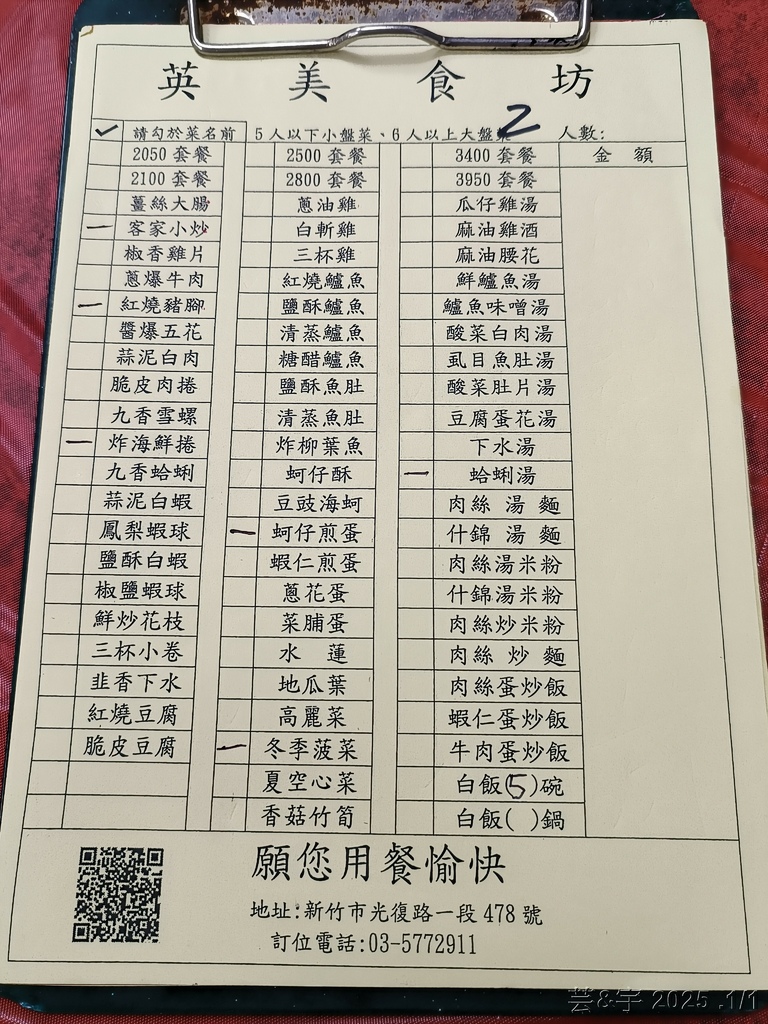 英美食坊
✓ 請勾於菜名前 5人以下小盤菜、6人以上大盤菜 2 人數:
2050 套餐 2500 套餐 3400 套餐 金額
2100 套餐 2800 套餐 3950 套餐
薑絲大腸 蔥油雞 瓜仔雞湯
一 客家小炒 白斬雞 麻油雞酒
椒香雞片 三杯雞 麻油腰花
蔥爆牛肉 紅燒鱸魚 鮮鱸魚湯
一 紅燒豬腳 鹽酥鱸魚 鱸魚味噌湯
醬爆五花 清蒸鱸魚 酸菜白肉湯
蒜泥白肉 糖醋鱸魚 虱目魚肚湯
脆皮肉捲 鹽酥魚肚 酸菜肚片湯
九香雪螺 清蒸魚肚 豆腐蛋花湯
一 炸海鮮捲 炸柳葉魚 下水湯
九香蛤蜊 蚵仔酥 一 蛤蜊湯
蒜泥白蝦 豆豉海蚵 肉絲湯麵
鳳梨蝦球 一 蚵仔煎蛋 什錦湯麵
鹽酥白蝦 蝦仁煎蛋 肉絲湯米粉
椒鹽蝦球 蔥花蛋 什錦湯米粉
鮮炒花枝 菜脯蛋 肉絲炒米粉
三杯小卷 水蓮 肉絲炒麵
韭香下水 地瓜葉 肉絲蛋炒飯
紅燒豆腐 高麗菜 蝦仁蛋炒飯
脆皮豆腐 一 冬季菠菜 牛肉蛋炒飯
夏空心菜 白飯(5)碗
香菇竹筍 白飯( )鍋
願您用餐愉快
地址:新竹市光復路一段 478 號
訂位電話:03-5772911
芸&宇 2025 .1/1